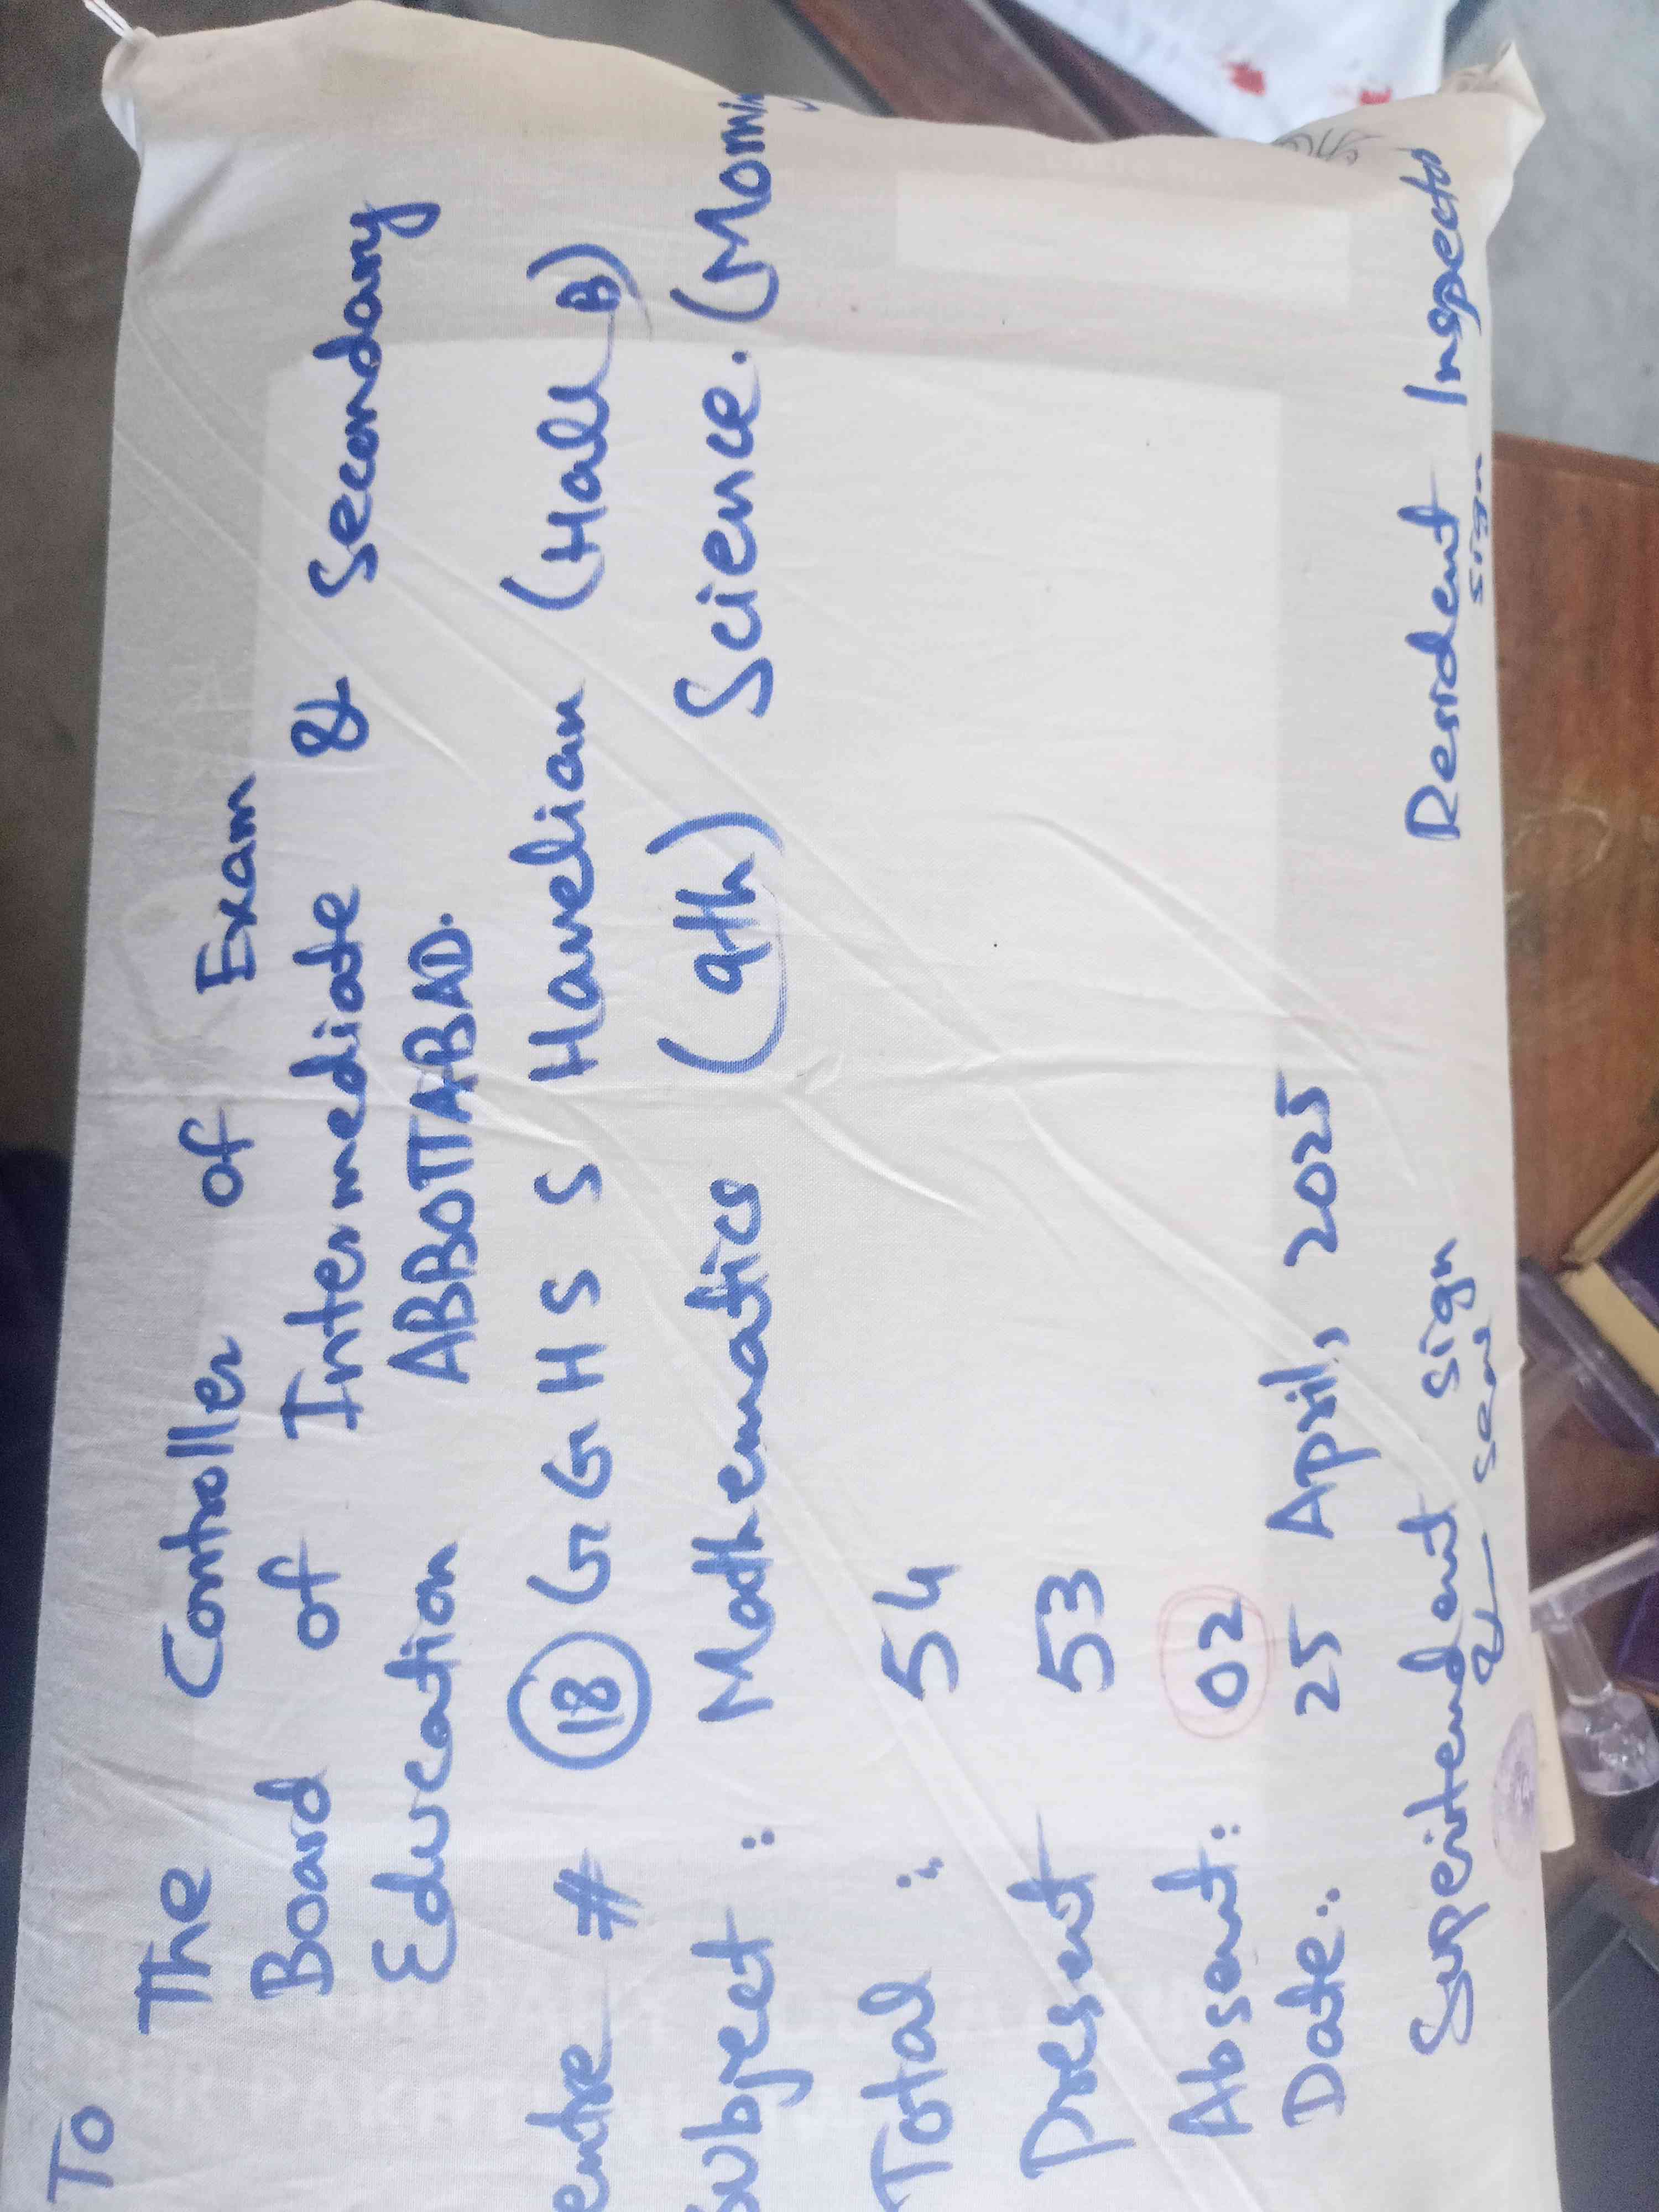 To
The Controller of Exam
Board of Intermediate & Secondary
Education ABBOTTABAD.
entre # 18 G G H S S Havelian (Hall B)
ubject : Mathematics (9th) Science. (Morning
Total : 54
Present 53
Absent: 02
Date: 25 April, 2025
Superintendent Sign Resident Inspector
& Seal Sign